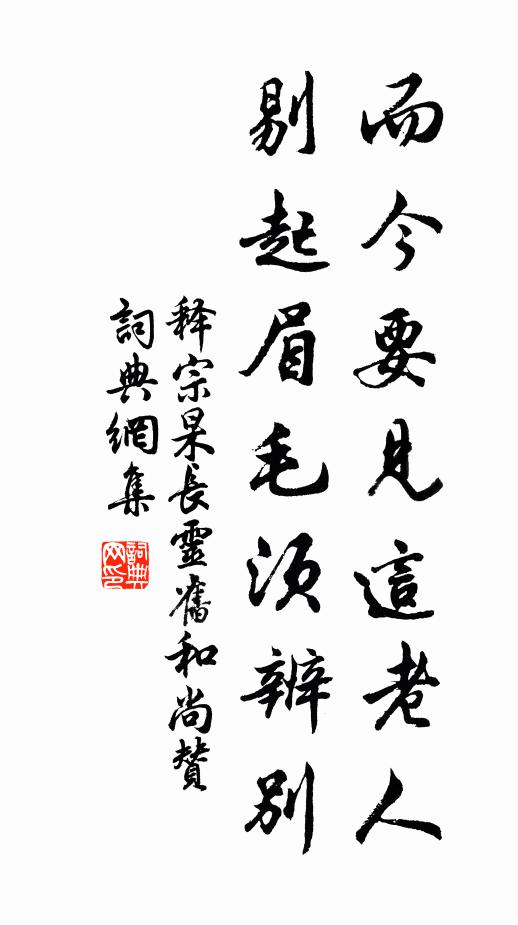 而今要見這老人
剔起眉毛須辨別
释宗杲長靈舊和尚贊
詞典網集
詞典网印